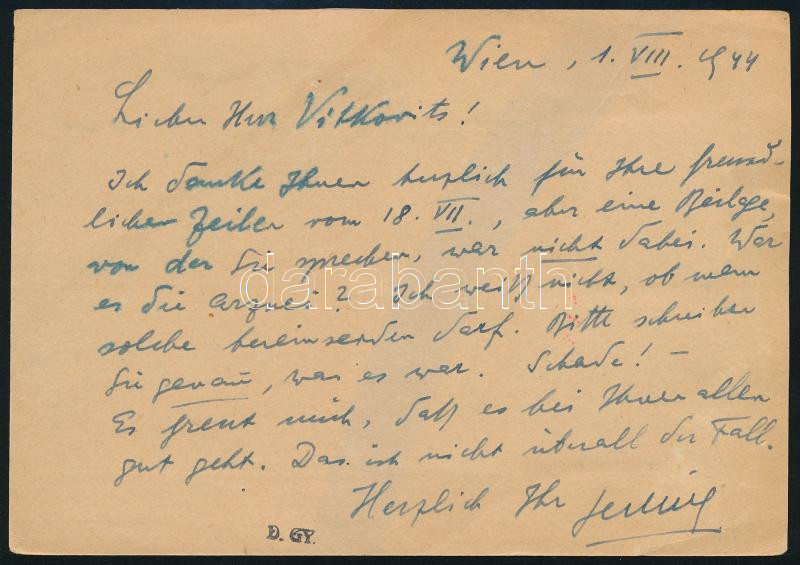 Wien, 1. VIII. 1944
Lieber Herr Vitkovits!
Ich danke Ihnen herzlich für Ihre freund-
lichen Zeilen vom 18. VII., aber eine Beilage,
von der Sie sprechen, war nicht dabei. War
es die Arznei? Ich weiß nicht, ob man
solche hereinsenden darf. Bitte schreiben
Sie genau, was es war. Schade! –
Es freut mich, daß es bei Ihnen allen
gut geht. Das ist nicht überall der Fall.
Herzlich Ihr
D. GY.
darabanth